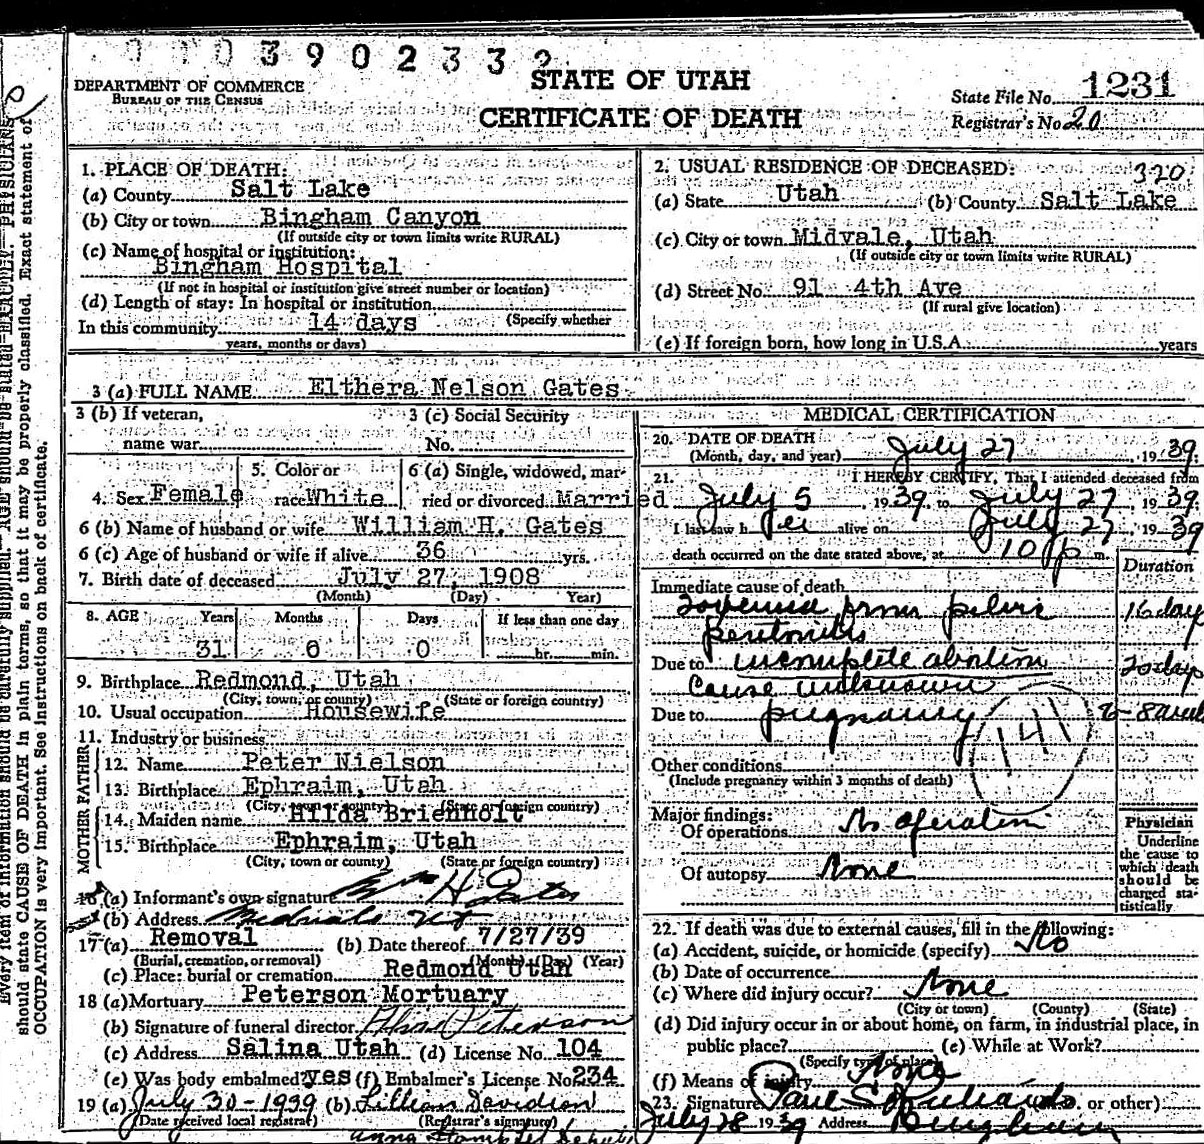 3902332
STATE OF UTAH
CERTIFICATE OF DEATH
DEPARTMENT OF COMMERCE
BUREAU OF THE CENSUS
State File No. 1231
Registrar's No 20
1. PLACE OF DEATH:
(a) County Salt Lake
(b) City or town Bingham Canyon
(If outside city or town limits write RURAL)
(c) Name of hospital or institution:
Bingham Hospital
(If not in hospital or institution give street number or location)
(d) Length of stay: In hospital or institution
In this community 14 days (Specify whether
years, months or days)
2. USUAL RESIDENCE OF DECEASED: 320
(a) State Utah (b) County Salt Lake
(c) City or town Midvale, Utah
(If outside city or town limits write RURAL)
(d) Street No. 91 4th Ave
(If rural give location)
(e) If foreign born, how long in U.S.A. years
3 (a) FULL NAME Elthera Nelson Gates
3 (b) If veteran,
name war
3 (c) Social Security
No.
4. Sex Female
5. Color or
race White
6 (a) Single, widowed, mar-
ried or divorced Married
6 (b) Name of husband or wife William H. Gates
6 (c) Age of husband or wife if alive 36 yrs.
7. Birth date of deceased July 27, 1908
(Month) (Day) Year)
8. AGE Years Months Days If less than one day
31 0 0 hr. min.
9. Birthplace Redmond, Utah
(City, town, or county) (State or foreign country)
10. Usual occupation Housewife
11. Industry or business
FATHER
12. Name Peter Nielson
13. Birthplace Ephraim, Utah
(City, town or county) (State or foreign country)
MOTHER
14. Maiden name Hilda Brienholt
15. Birthplace Ephraim, Utah
(City, town or county) (State or foreign country)
16 (a) Informant's own signature Wm H. Gates
(b) Address Midvale Ut
17 (a) Removal (b) Date thereof 7/27/39
(Burial, cremation, or removal) (Month) (Day) (Year)
(c) Place: burial or cremation Redmond Utah
18 (a) Mortuary Peterson Mortuary
(b) Signature of funeral director Peterson
(c) Address Salina Utah (d) License No. 104
(e) Was body embalmed? yes (f) Embalmer's License No 234
19 (a) July 30-1939 (b) Lillian Davidson
(Date received local registrar) (Registrar's signature)
MEDICAL CERTIFICATION
20. DATE OF DEATH
(Month, day, and year) July 27, 1939.
21. I HEREBY CERTIFY, That I attended deceased from
July 5, 1939, to July 27, 1939
I last saw her alive on July 27, 1939
death occurred on the date stated above, at 10 p m.
Duration
Immediate cause of death
Toxemia from pelvic 16 day
peritonitis
Due to incomplete abortion 20 day
Cause unknown
Due to pregnancy 6-8 week
141
Other conditions
(Include pregnancy within 3 months of death)
Major findings:
Of operations No operation
Of autopsy None
Physician
Underline
the cause to
which death
should be
charged sta-
tistically
22. If death was due to external causes, fill in the following:
(a) Accident, suicide, or homicide (specify) No
(b) Date of occurrence
(c) Where did injury occur? None
(City or town) (County) (State)
(d) Did injury occur in or about home, on farm, in industrial place, in
public place? (e) While at Work?
(Specify type of place)
(f) Means of injury None
23. Signature Paul S. Richards or other)
July 28 1939 Address Bingham
Every item of information should be carefully supplied. AGE should be stated EXACTLY. PHYSICIANS
should state CAUSE OF DEATH in plain terms, so that it may be properly classified. Exact statement of
OCCUPATION is very important. See instructions on back of certificate.